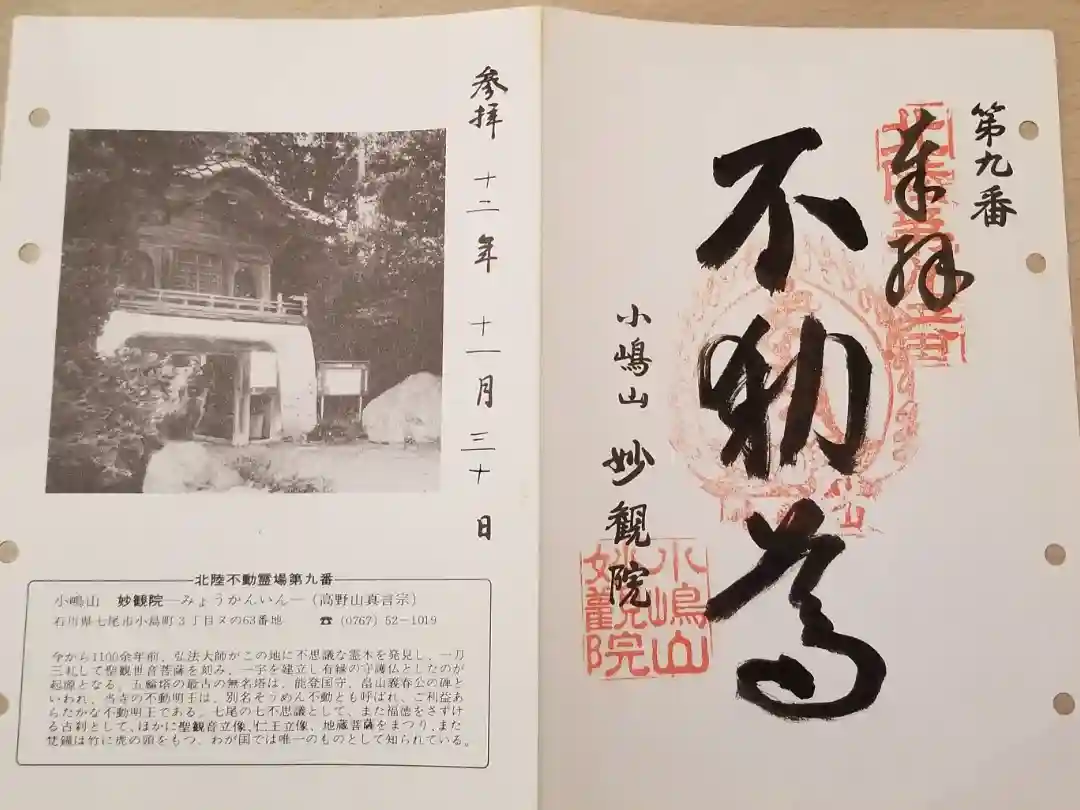 第九番
奉拝
不動尊
小嶋山 妙観院
小嶋山
妙観院
参拝 十二年 十一月 三十日
北陸不動霊場第九番
小嶋山 妙観院―みょうかんいん―(高野山真言宗)
石川県七尾市小島町3丁目ヌの63番地 ☎(0767)52-1019
今から1100余年前、弘法大師がこの地に不思議な霊木を発見し、一刀
三礼して聖観世音菩薩を刻み、一宇を建立し有縁の守護仏としたのが
起源となる。五輪塔の最古の無名塔は、能登国守、畠山義春公の碑と
いわれ、当寺の不動明王は、別名そうめん不動とも呼ばれ、ご利益あ
らたかな不動明王である。七尾の七不思議として、また福徳をさずけ
る古刹として、ほかに聖観音立像、仁王立像、地蔵菩薩をまつり、また
梵鐘は竹に虎の頭をもつ、わが国では唯一のものとして知られている。